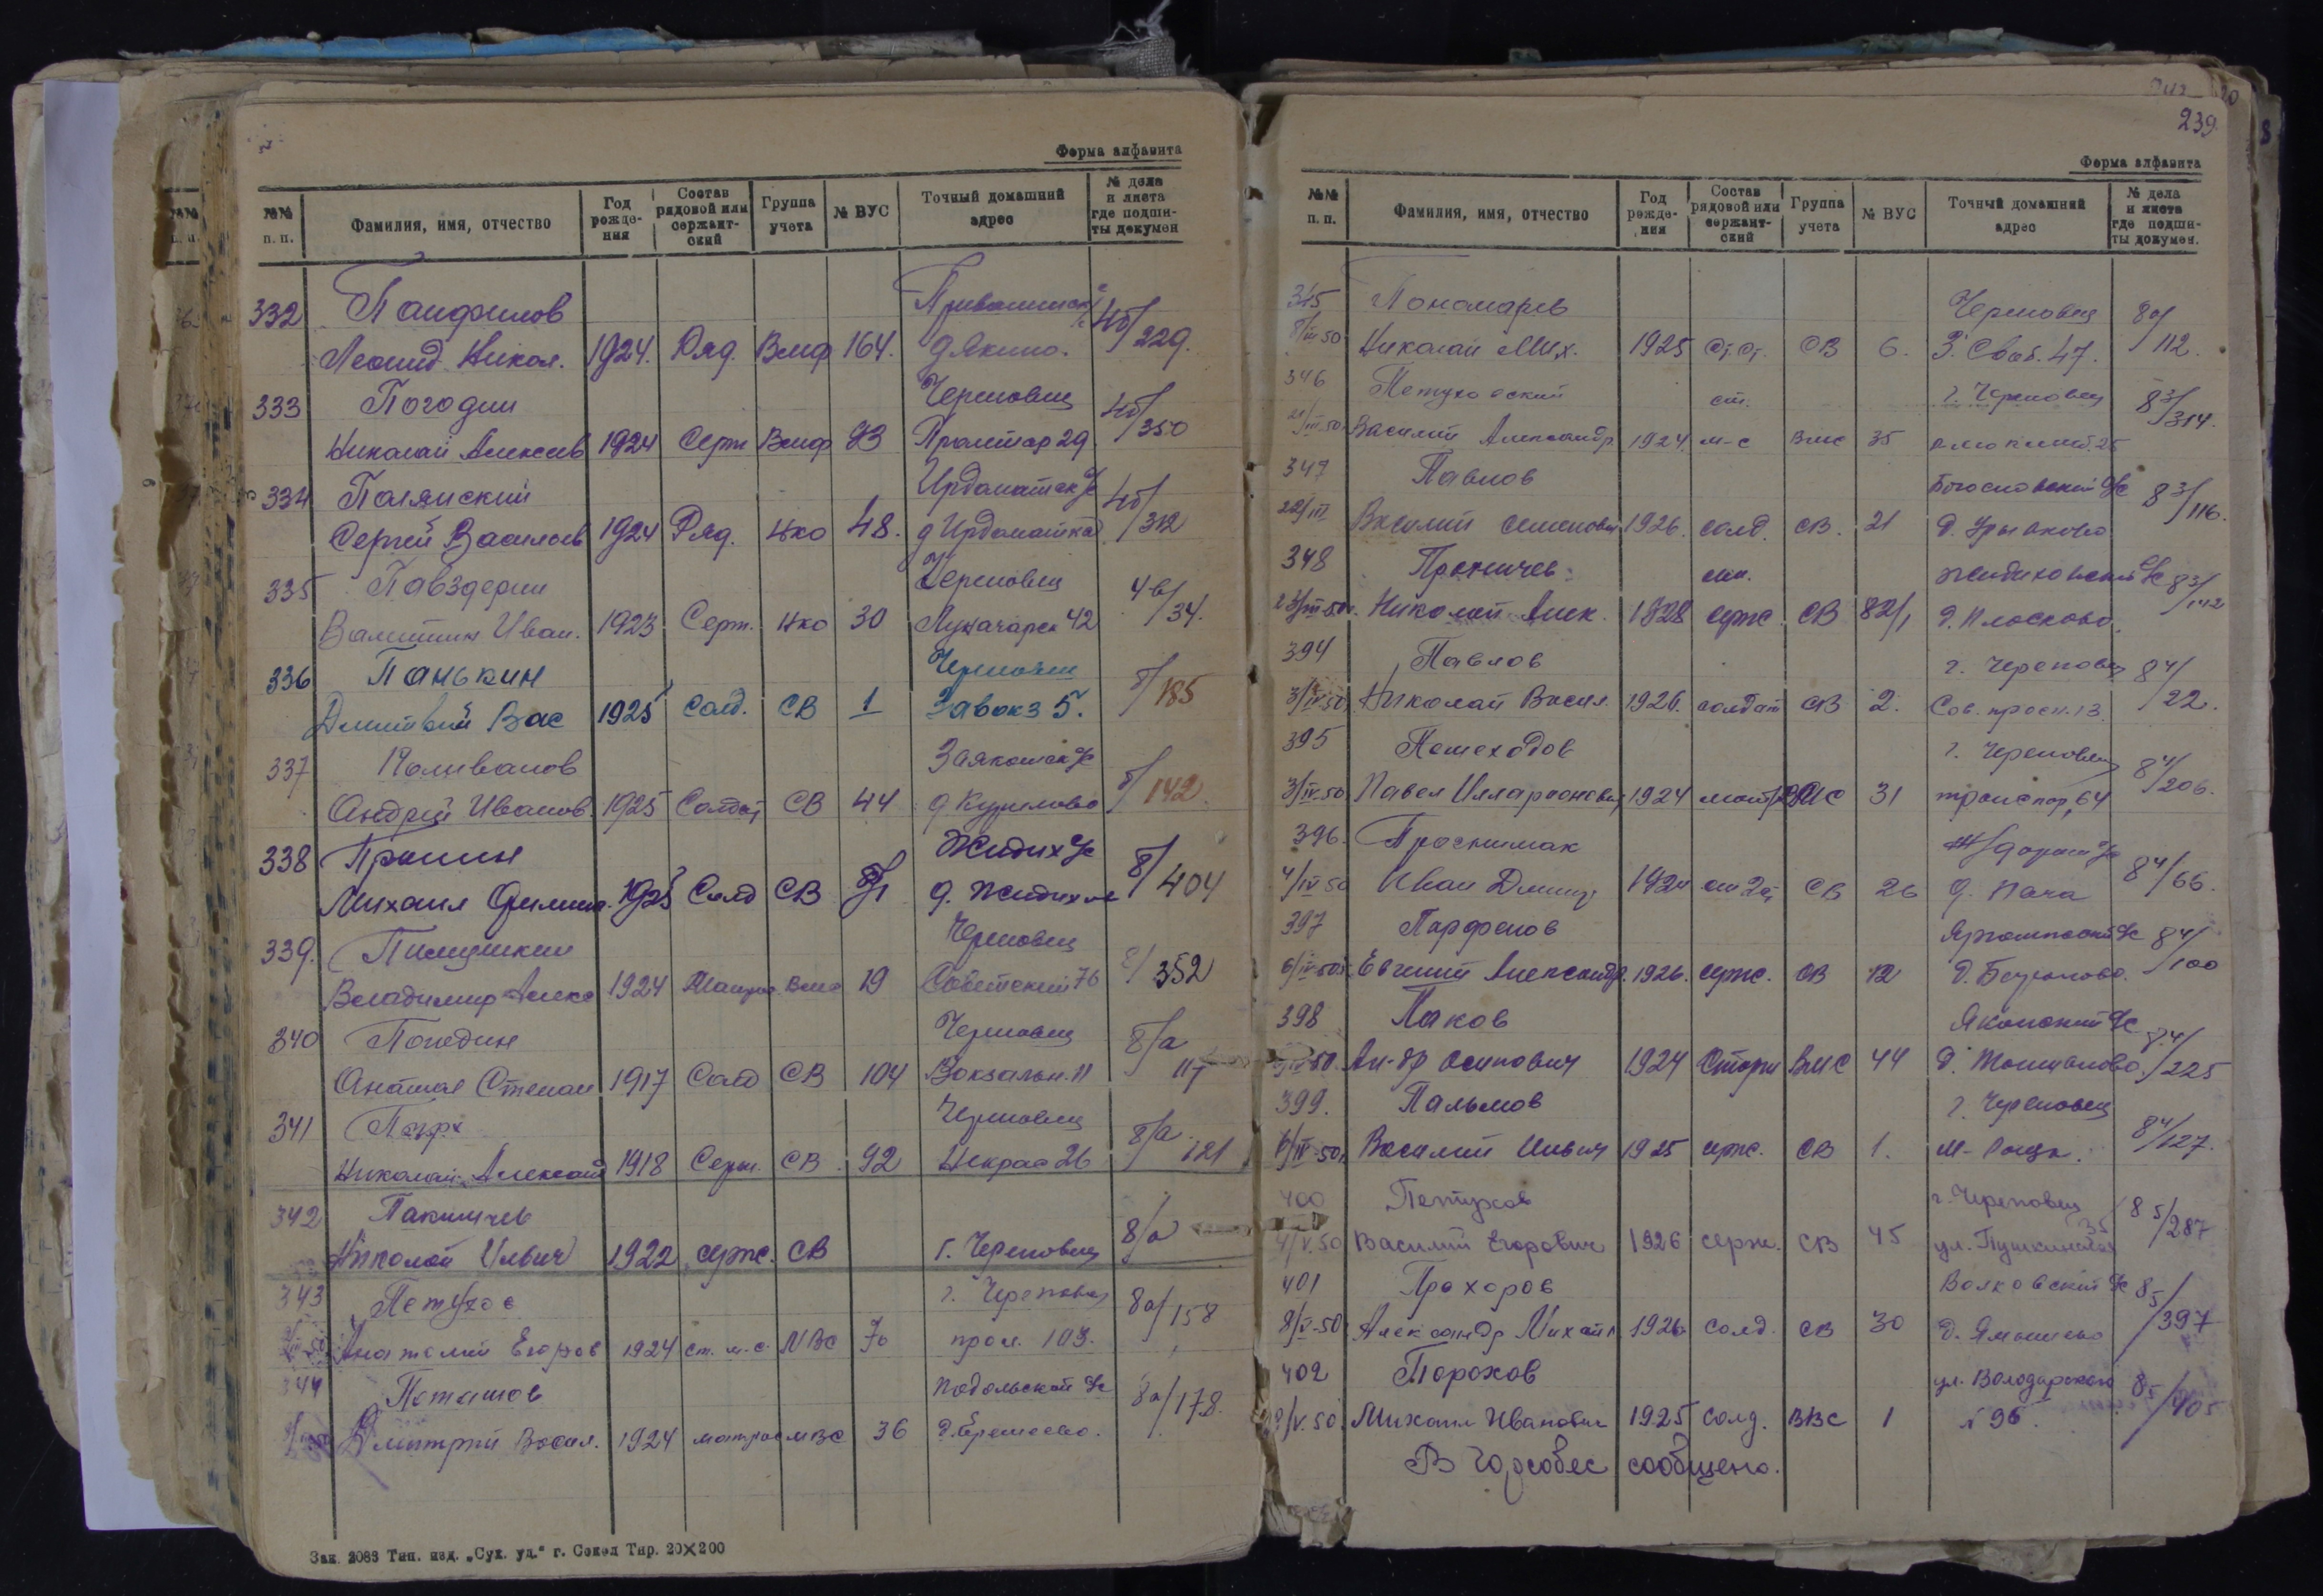 Форма алфавита
№№ п. п. Фамилия, имя, отчество Год рожде- ния Состав рядовой или сержант- ский Группа учета № ВУС Точный домашний адрес № дела и листа где подши- ты докумен
332 Панфилов
Леонид Никол. 1924. Ряд. Вмф 164. д Якино. 4б/229.
333 Погодин Череповец
Николай Алексеев 1924 Серж Вмф 93 Пролетар 29. 4б/350
334 Полянский Ирдоматск с/с
Сергей Васильев 1924 Ряд. Нко 48. д Ирдоматка 4б/312
335 Павздерин Череповец
Валентин Иван. 1923 Серж. Нко 30 Луначарск 42 4в/34.
336 Панькин Череповец
Дмитрий Вас 1925 Солд. СВ 1 Завокз 5. 185
337 Поливанов с/с
Андрей Иванов. 1925 Солдат СВ 44 д Курилово 142.
338 Пронин Жидих с/с
Михаил Филипп. 1925 Солд СВ д. Жидих 8/404
339. Череповец
Владимир Алекс 1924 Матрос Вмс 19 Советский 76 352
340 Погодин Череповец 8/а
Анатол Степан 1917 Солд СВ 104 Вокзальн. 11 117
341 Череповец 8/а
Николай Александ 1918 Серж. СВ 92 Некрас 26 121
342 Пакничев
Николай Ильич 1922 серж. СВ г. Череповец 8/а
343 Петухов г. Череповец 8а/158
Анатолий Егоров 1924 ст. м. с. МВС 70 прол. 103.
344 Поташов Подольский с/с 8а/178.
Дмитрий Васил. 1924 матрос МВС 36 д.
Зак. 2083 Тип. изд. „Сух. уд.“ г. Сокол Тир. 20×200
239.
Форма алфавита
№№ п. п. Фамилия, имя, отчество Год рожде- ния Состав рядовой или сержант- ский Группа учета № ВУС Точный домашний адрес № дела и листа где подши- ты докумен.
345 Пономарев Череповец 8а/112.
8/III 50 Николай Мих. 1925 СВ 6. 47.
346 Петуховский ст. г. Череповец 8 3/314.
21/III-50 Василий Александр. 1924. м-с вмс 35
347 Павлов Богословский с/с 8 3/116.
22/III Василий Семенович 1926. солд. СВ. 21 д.
348 Проничев мл. Жидиховский с/с 8 3/142
23/III-50г. Николай Алек. 1928 серж. СВ 82/1 д. Плосково.
394 Павлов г. Череповец 8 4/22.
3/IV-50 Николай Васил. 1926. солдат СВ 2. Сов. просп. 13.
395 Пешеходов г. Череповец 8 4/206.
3/IV-50 Павел Илларионович 1924 матр ВМС 31 транспор, 64
396. Проснишак 8 4/66.
4/IV 50 Иван Дмитр 1924 СВ 26 д. Пача
397 Парфенов с/с 8 4/100
6/IV-50г. Евгений Александр. 1926. серж. СВ 12 д.
398 Паков с/с 8.4/225
50. Ал-др Осипович 1924 ВМС 44 д.
399. Пальмов г. Череповец 8 4/127.
6/IV-50г. Василий Ильич 1925 серж. СВ 1. М-Роща.
400 Петухов г. Череповец 8 5/287
4/V.50 Василий Егорович 1926 серж. СВ 45 ул. Пушкинская 35
401 Прохоров Волковский с/с 8 5/397
8/V-50 Александр Михайл 1926 солд. СВ 30 д.
402 Порохов ул. Володарского 8 5/405
/V.50. Михаил Иванович 1925 солд. ВВС 1 96.
В Горсобес сообщено.